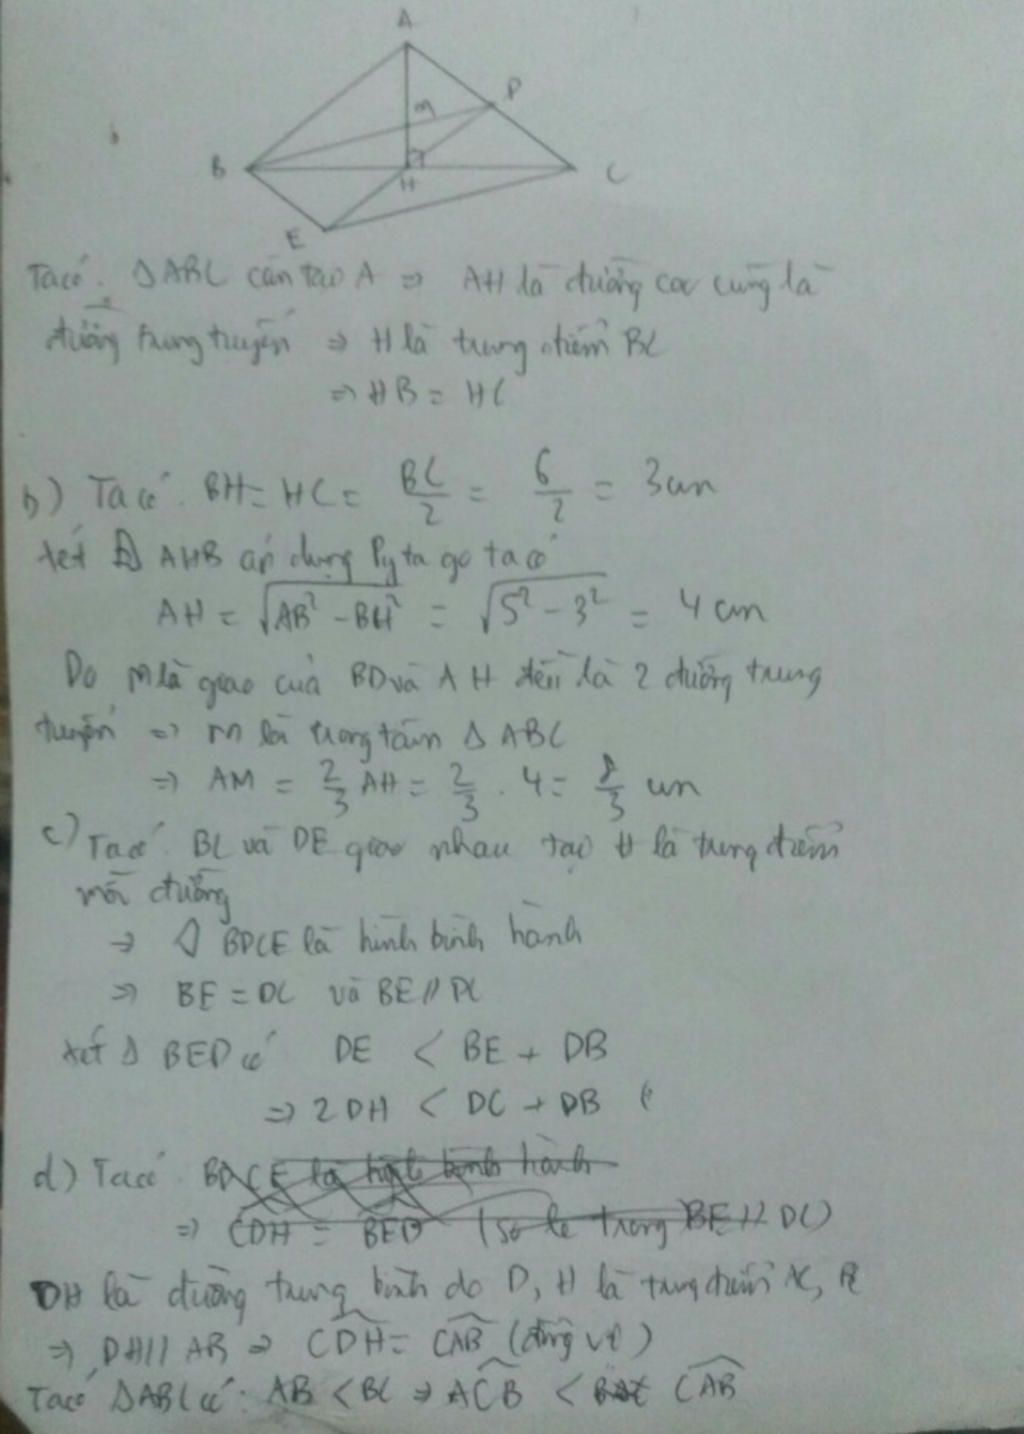 A
D
M
B
H
C
E
Ta có. Δ ABC cân tại A ⇒ AH là đường cao cũng là
đường trung tuyến ⇒ H là trung điểm BC
⇒ HB = HC
b) Ta có. BH = HC = BC/2 = 6/2 = 3cm
Xét Δ AHB áp dụng Pytago ta có
AH = √(AB² - BH²) = √(5² - 3²) = 4 cm
Do M là giao của BD và AH đều là 2 đường trung
tuyến ⇒ M là trọng tâm Δ ABC
⇒ AM = 2/3 AH = 2/3 . 4 = 8/3 cm
c) Ta có. BC và DE giao nhau tại H là trung điểm
mỗi đường
⇒ ◊ BDCE là hình bình hành
⇒ BE = DC và BE // DC
Xét Δ BED có DE < BE + DB
⇒ 2DH < DC + DB (
d) Ta có. BDCE là hình bình hành
⇒ CDH = BED (so le trong BE // DC)
DH là đường trung bình do D, H là trung điểm AC, BC
⇒ DH // AB ⇒ CDH = CAB (đồng vị)
Ta có ΔABC có: AB < BC ⇒ ACB < CAB